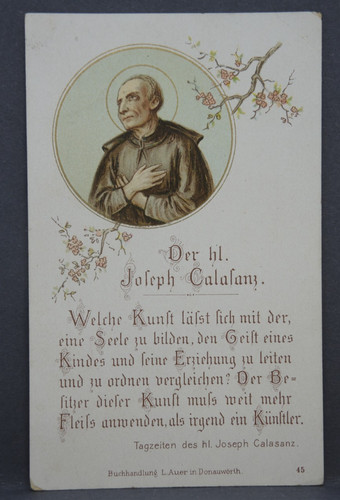 Der hl.
Joseph Calasanz.
Welche Kunst läſst ſich mit der,
eine Seele zu bilden, den Geiſt eines
Kindes und ſeine Erziehung zu leiten
und zu ordnen vergleichen? Der Be-
ſitzer dieſer Kunſt muſs weit mehr
Fleiſs anwenden, als irgend ein Künſtler.
Tagzeiten des hl. Joseph Calasanz.
Buchhandlung L. Auer in Donauwörth.
45